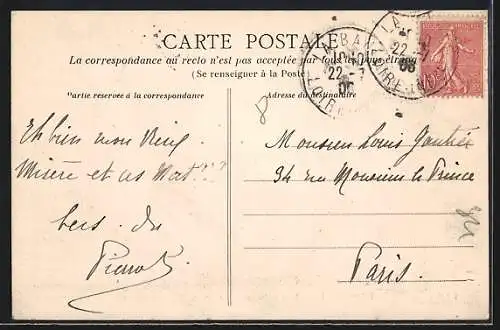 CARTE POSTALE
La correspondance au recto n'est pas acceptée par tous les pays étrangers
(Se renseigner à la Poste)
Partie réservée à la correspondance
Adresse du destinataire
LA BA
22 -7
06
LOIRE
LA
22
06
10
Eh bien mon
Misère et ces
Monsieur Louis
34 rue Monsieur le Prince
Paris.
du
Pierrot